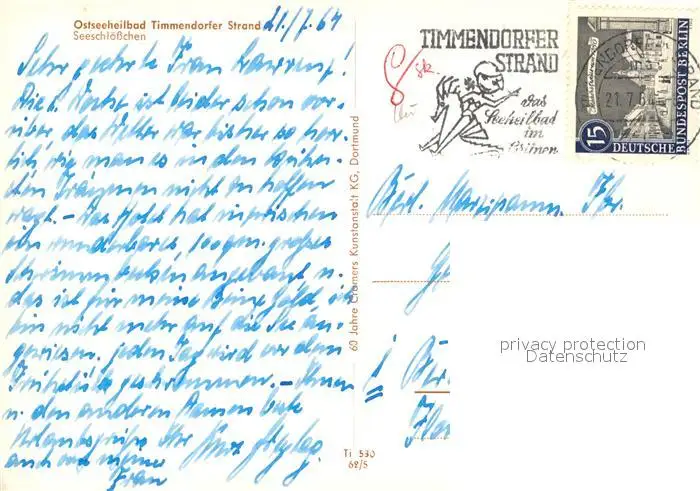 Ostseeheilbad Timmendorfer Strand 21./7.64
Seeschlößchen
Sehr geehrte Frau
Die 1. Woche ist leider schon vor-
über, das Wetter war bisher so herr-
lich wie man es in den kühn-
sten Träumen nicht zu hoffen
wagt. - Das Hotel hat inzwischen
ein wunderbares, 100 qm. großes
Schwimmbecken angebaut u.
das ist für meine Beine Gold, ich
bin nicht mehr auf die See an-
gewiesen. Jeden Tag wird vor dem
Frühstück geschwommen. - Ihnen
u. den anderen Damen beste
Urlaubsgrüße Ihr
auch von meiner
Frau
60 Jahre Cramers Kunstanstalt KG, Dortmund
Ti 530
62/5
TIMMENDORFER
STRAND
Das
Seeheilbad
im
21.7.64
15
DEUTSCHE
BUNDESPOST BERLIN
Berl. Marzipanm. Fbr.
Ber
privacy protection
Datenschutz